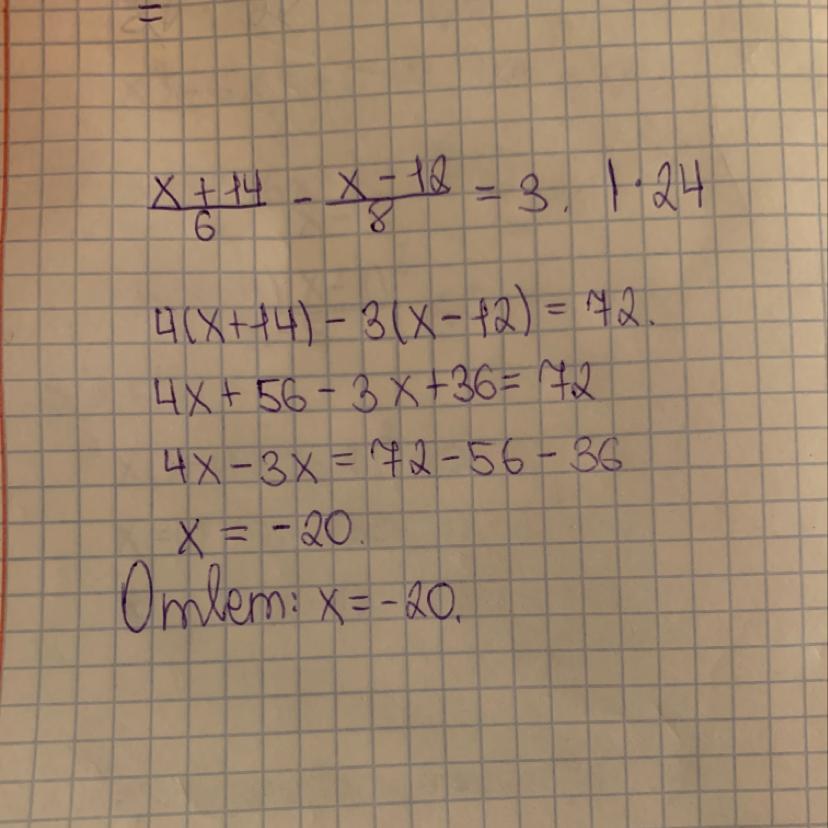 =
x+14/6 - x-12/8 = 3. |·24
4(x+14)-3(x-12)=72.
4x+56-3x+36=72
4x-3x=72-56-36
x=-20.
Ответ: x=-20.